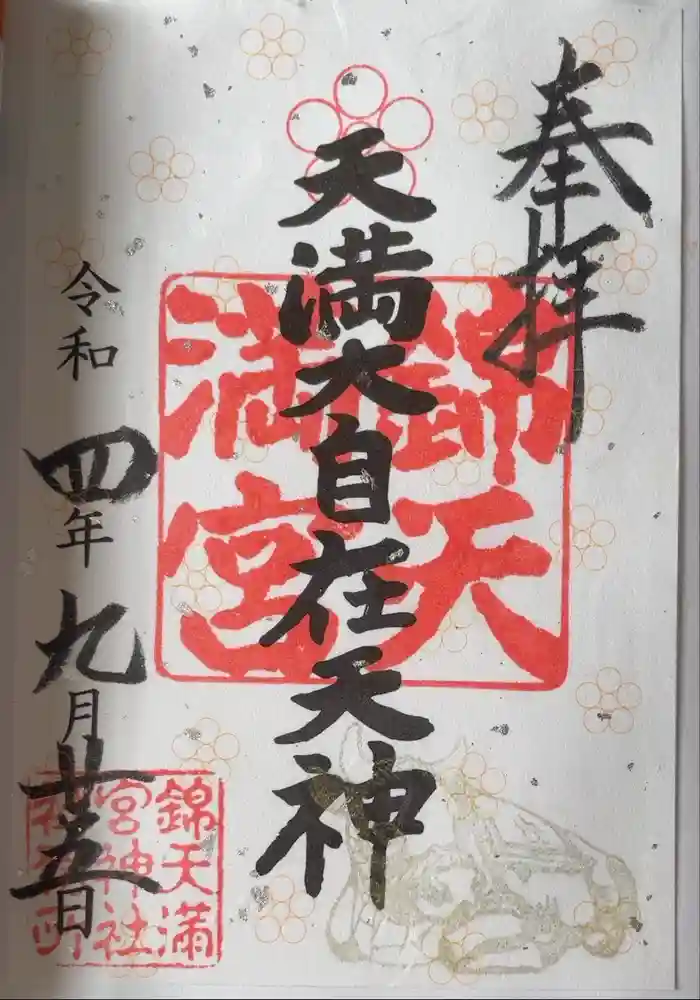 奉拝
天満大自在天神
錦天
満宮
令和四年九月廿五日
錦天満
宮神社